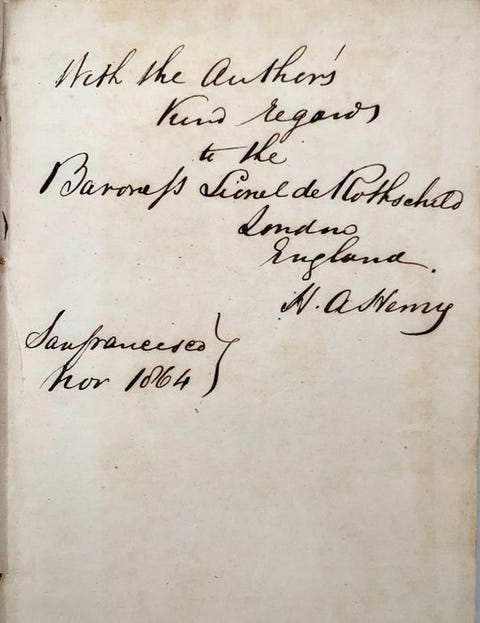 With the Author's
Kind regards
to the
Baroneſs Lionel de Rothschild
London
England.
H. A Henry
Sanfrancisco
Nov 1864